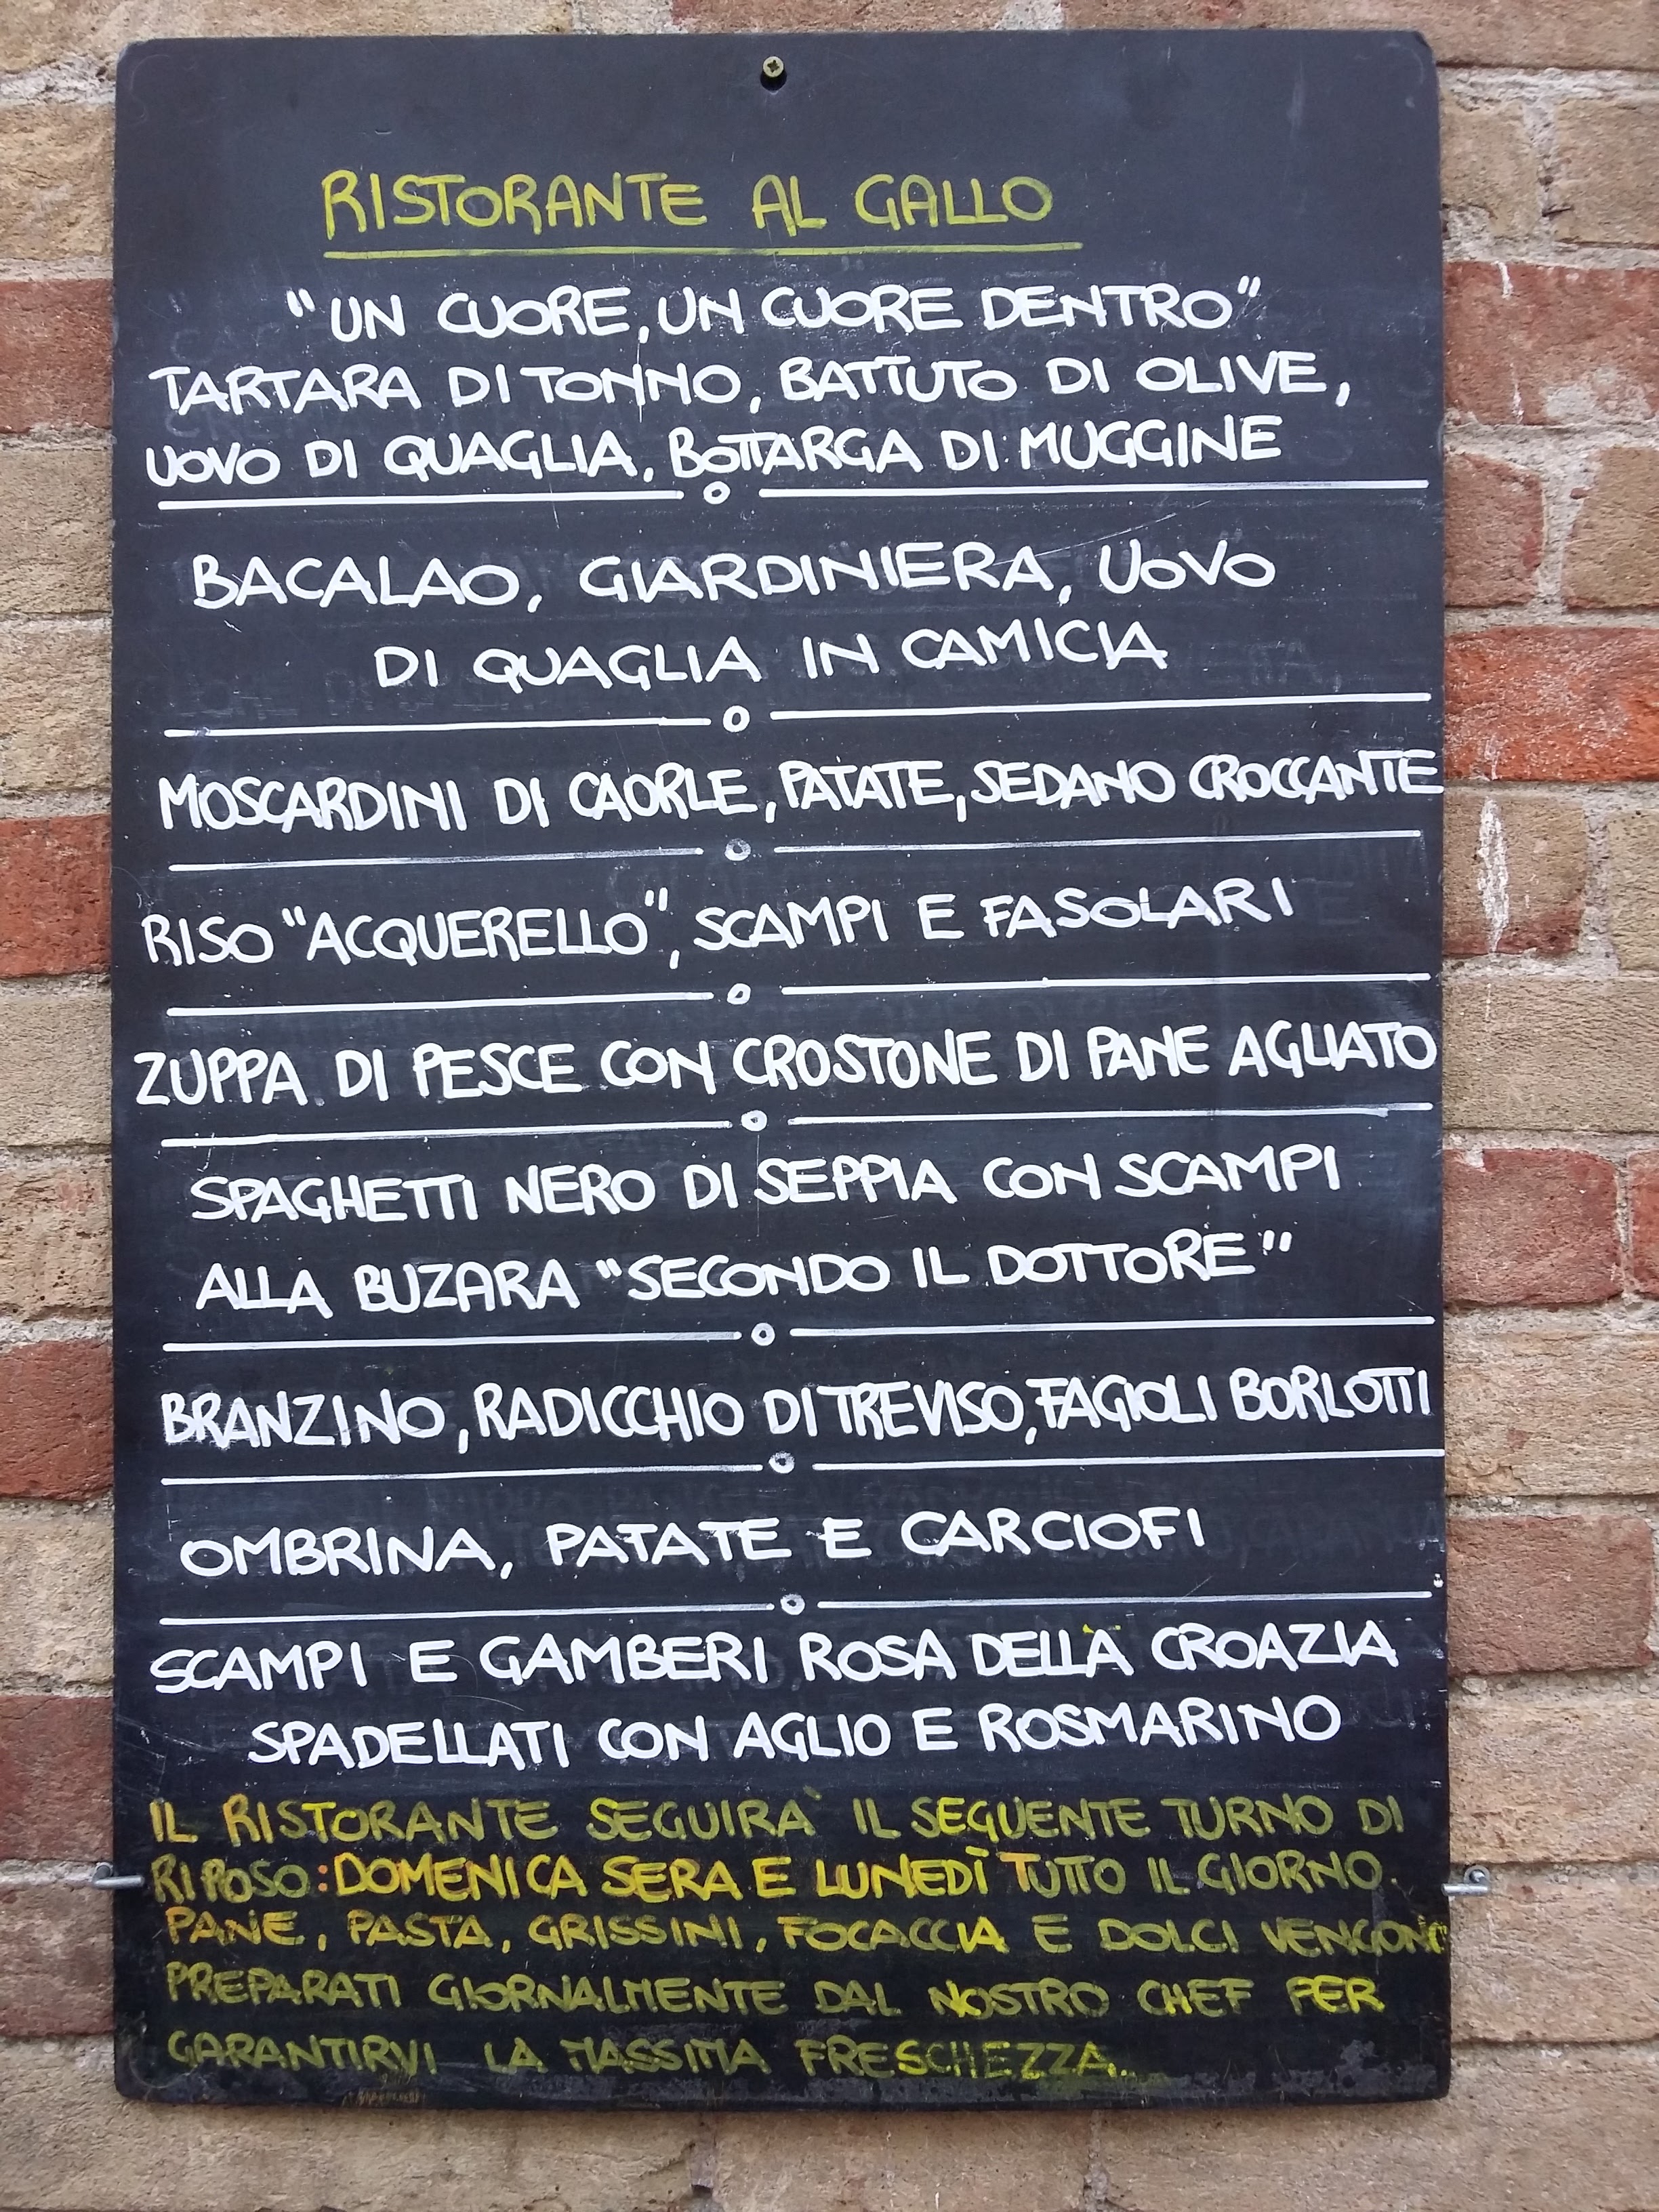 RISTORANTE AL GALLO
"UN CUORE, UN CUORE DENTRO"
TARTARA DI TONNO, BATTUTO DI OLIVE,
UOVO DI QUAGLIA, BOTTARGA DI MUGGINE
BACALAO, GIARDINIERA, UOVO
DI QUAGLIA IN CAMICIA
MOSCARDINI DI CAORLE, PATATE, SEDANO CROCCANTE
RISO "ACQUERELLO", SCAMPI E FASOLARI
ZUPPA DI PESCE CON CROSTONE DI PANE AGLIATO
SPAGHETTI NERO DI SEPPIA CON SCAMPI
ALLA BUZARA "SECONDO IL DOTTORE"
BRANZINO, RADICCHIO DI TREVISO, FAGIOLI BORLOTTI
OMBRINA, PATATE E CARCIOFI
SCAMPI E GAMBERI ROSA DELLA CROAZIA
SPADELLATI CON AGLIO E ROSMARINO
IL RISTORANTE SEGUIRA' IL SEGUENTE TURNO DI
RIPOSO: DOMENICA SERA E LUNEDÌ TUTTO IL GIORNO.
PANE, PASTA, GRISSINI, FOCACCIA E DOLCI VENGONO
PREPARATI GIORNALMENTE DAL NOSTRO CHEF PER
GARANTIRVI LA MASSIMA FRESCHEZZA..